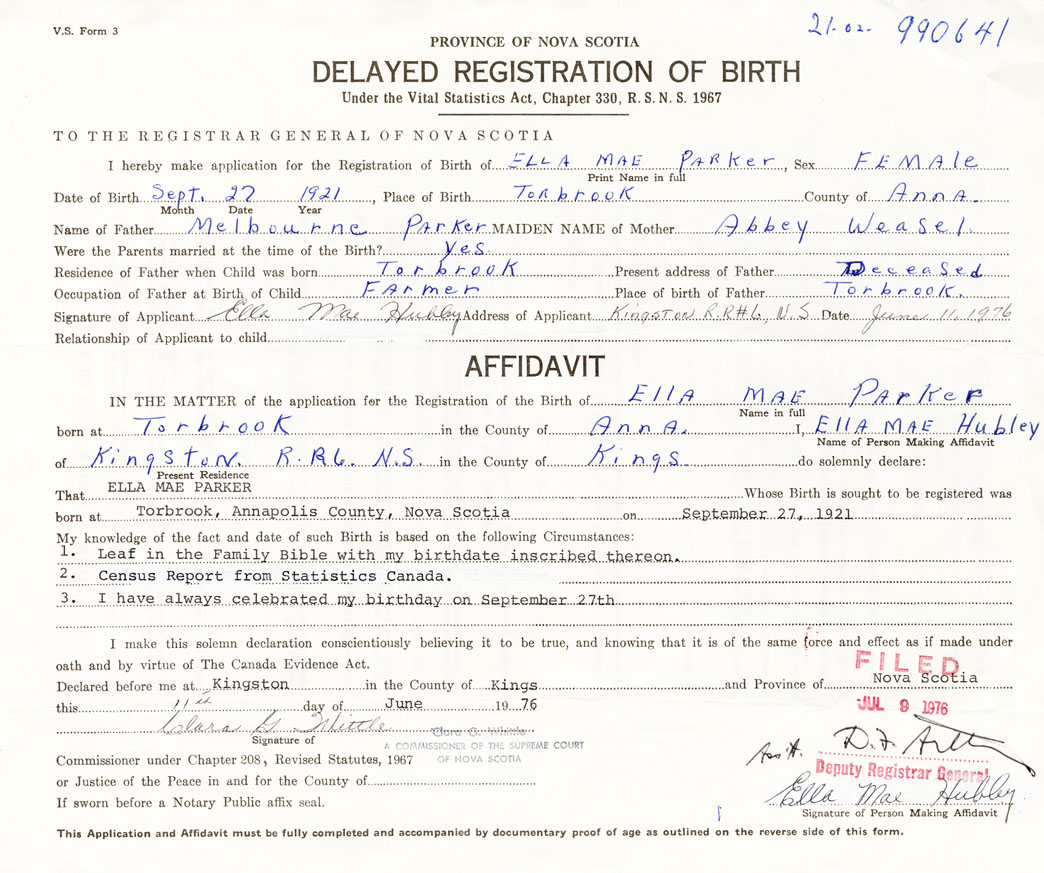 V.S. Form 3
21-02- 990641
PROVINCE OF NOVA SCOTIA
DELAYED REGISTRATION OF BIRTH
Under the Vital Statistics Act, Chapter 330, R. S. N. S. 1967
TO THE REGISTRAR GENERAL OF NOVA SCOTIA
I hereby make application for the Registration of Birth of ELLA MAE PARKer, Sex FEMAle
Print Name in full
Date of Birth Sept. 27 1921, Place of Birth Torbrook County of AnnA.
Month Date Year
Name of Father Melbourne Parker MAIDEN NAME of Mother Abbey Weasel.
Were the Parents married at the time of the Birth? yes
Residence of Father when Child was born Torbrook Present address of Father Deceased
Occupation of Father at Birth of Child FArmer Place of birth of Father Torbrook.
Signature of Applicant Ella Mae Hubley Address of Applicant Kingston R.R#6, N.S Date June 11, 1976
Relationship of Applicant to child
AFFIDAVIT
IN THE MATTER of the application for the Registration of the Birth of EllA MAE PArKer
Name in full
born at Torbrook in the County of AnnA. I, EllA MAE Hubley
Name of Person Making Affidavit
of KingsToN. R.R6. N.S. in the County of Kings do solemnly declare:
Present Residence
That ELLA MAE PARKER Whose Birth is sought to be registered was
born at Torbrook, Annapolis County, Nova Scotia on September 27, 1921
My knowledge of the fact and date of such Birth is based on the following Circumstances:
1. Leaf in the Family Bible with my birthdate inscribed thereon.
2. Census Report from Statistics Canada.
3. I have always celebrated my birthday on September 27th
I make this solemn declaration conscientiously believing it to be true, and knowing that it is of the same force and effect as if made under
oath and by virtue of The Canada Evidence Act.
FILED
Declared before me at Kingston in the County of Kings and Province of Nova Scotia
this 11th day of June 1976
JUL 9 1976
Clara G. Whittle
Signature of
Clara G. Whittle
A COMMISSIONER OF THE SUPREME COURT
OF NOVA SCOTIA
Commissioner under Chapter 208, Revised Statutes, 1967
Ass't. D.F.
Deputy Registrar General
or Justice of the Peace in and for the County of
Ella Mae Hubley
If sworn before a Notary Public affix seal.
Signature of Person Making Affidavit
This Application and Affidavit must be fully completed and accompanied by documentary proof of age as outlined on the reverse side of this form.